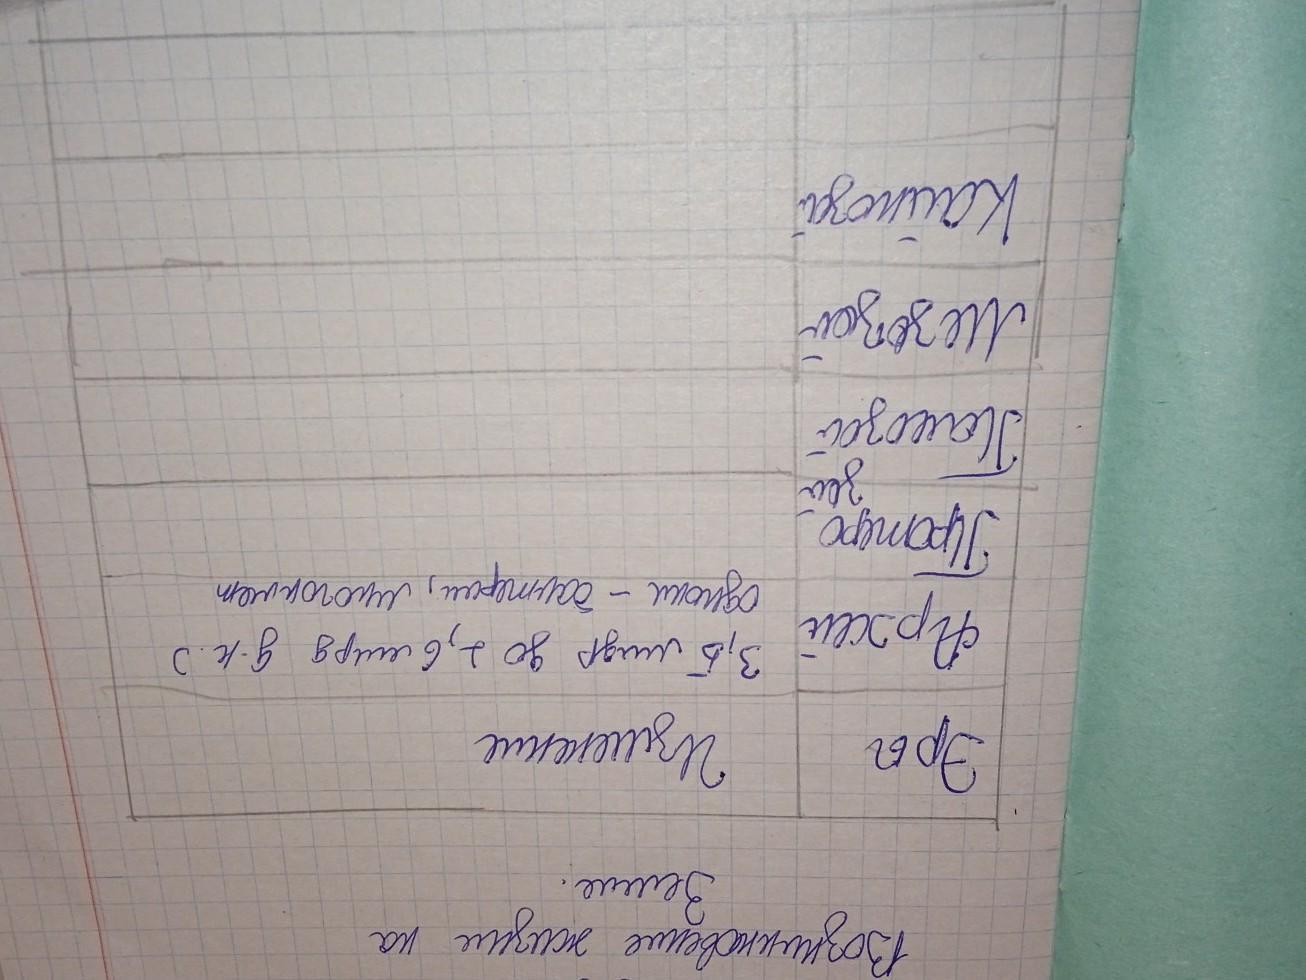 Возникновение жизни на
Земле.
Эра Изменение
Архей 3,5 млрд до 2,6 млрд д.н.э
одноки - бактерии, многоклет
Протеро
зей
Палеозой
Мезозой
Кайнозой